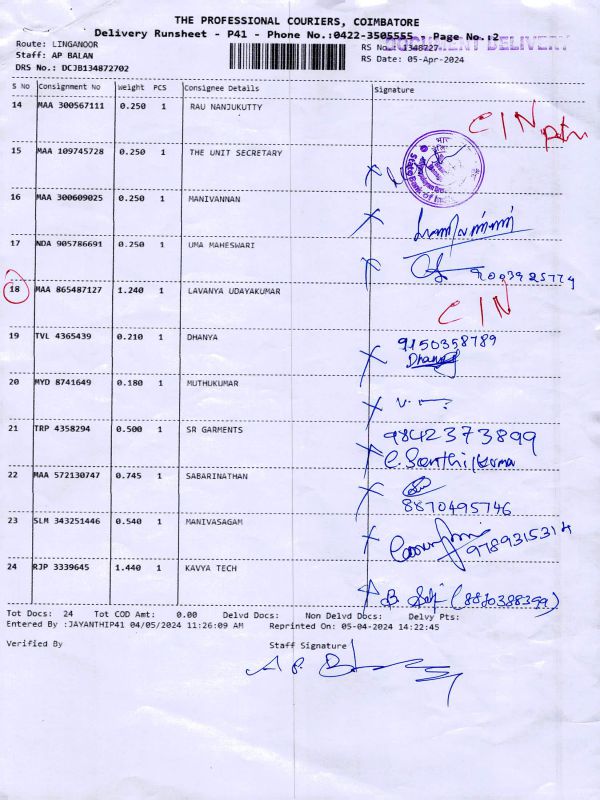 THE PROFESSIONAL COURIERS, COIMBATORE
Delivery Runsheet - P41 - Phone No.:0422-3505555 - Page No.:2
DOCUMENT DELIVERY
Route: LINGANOOR
RS No.: 1348727
Staff: AP BALAN
RS Date: 05-Apr-2024
DRS No.: DCJB134872702
S No Consignment No Weight PCS Consignee Details Signature
14 MAA 300567111 0.250 1 RAU NANJUKUTTY C/N
15 MAA 109745728 0.250 1 THE UNIT SECRETARY
State Bank of India
16 MAA 300609025 0.250 1 MANIVANNAN
17 NDA 905786691 0.250 1 UMA MAHESWARI
18 MAA 865487127 1.240 1 LAVANYA UDAYAKUMAR C/N
19 TVL 4365439 0.210 1 DHANYA 9150358789
Dhanya
20 MYD 8741649 0.180 1 MUTHUKUMAR
21 TRP 4358294 0.500 1 SR GARMENTS 9842373899
C. Senthilkumar
22 MAA 572130747 0.745 1 SABARINATHAN
8870495746
23 SLM 343251446 0.540 1 MANIVASAGAM 9789315314
24 RJP 3339645 1.440 1 KAVYA TECH
Tot Docs: 24 Tot COD Amt: 0.00 Delvd Docs: Non Delvd Docs: Delvy Pts:
Entered By :JAYANTHIP41 04/05/2024 11:26:09 AM Reprinted On: 05-04-2024 14:22:45
Verified By Staff Signature